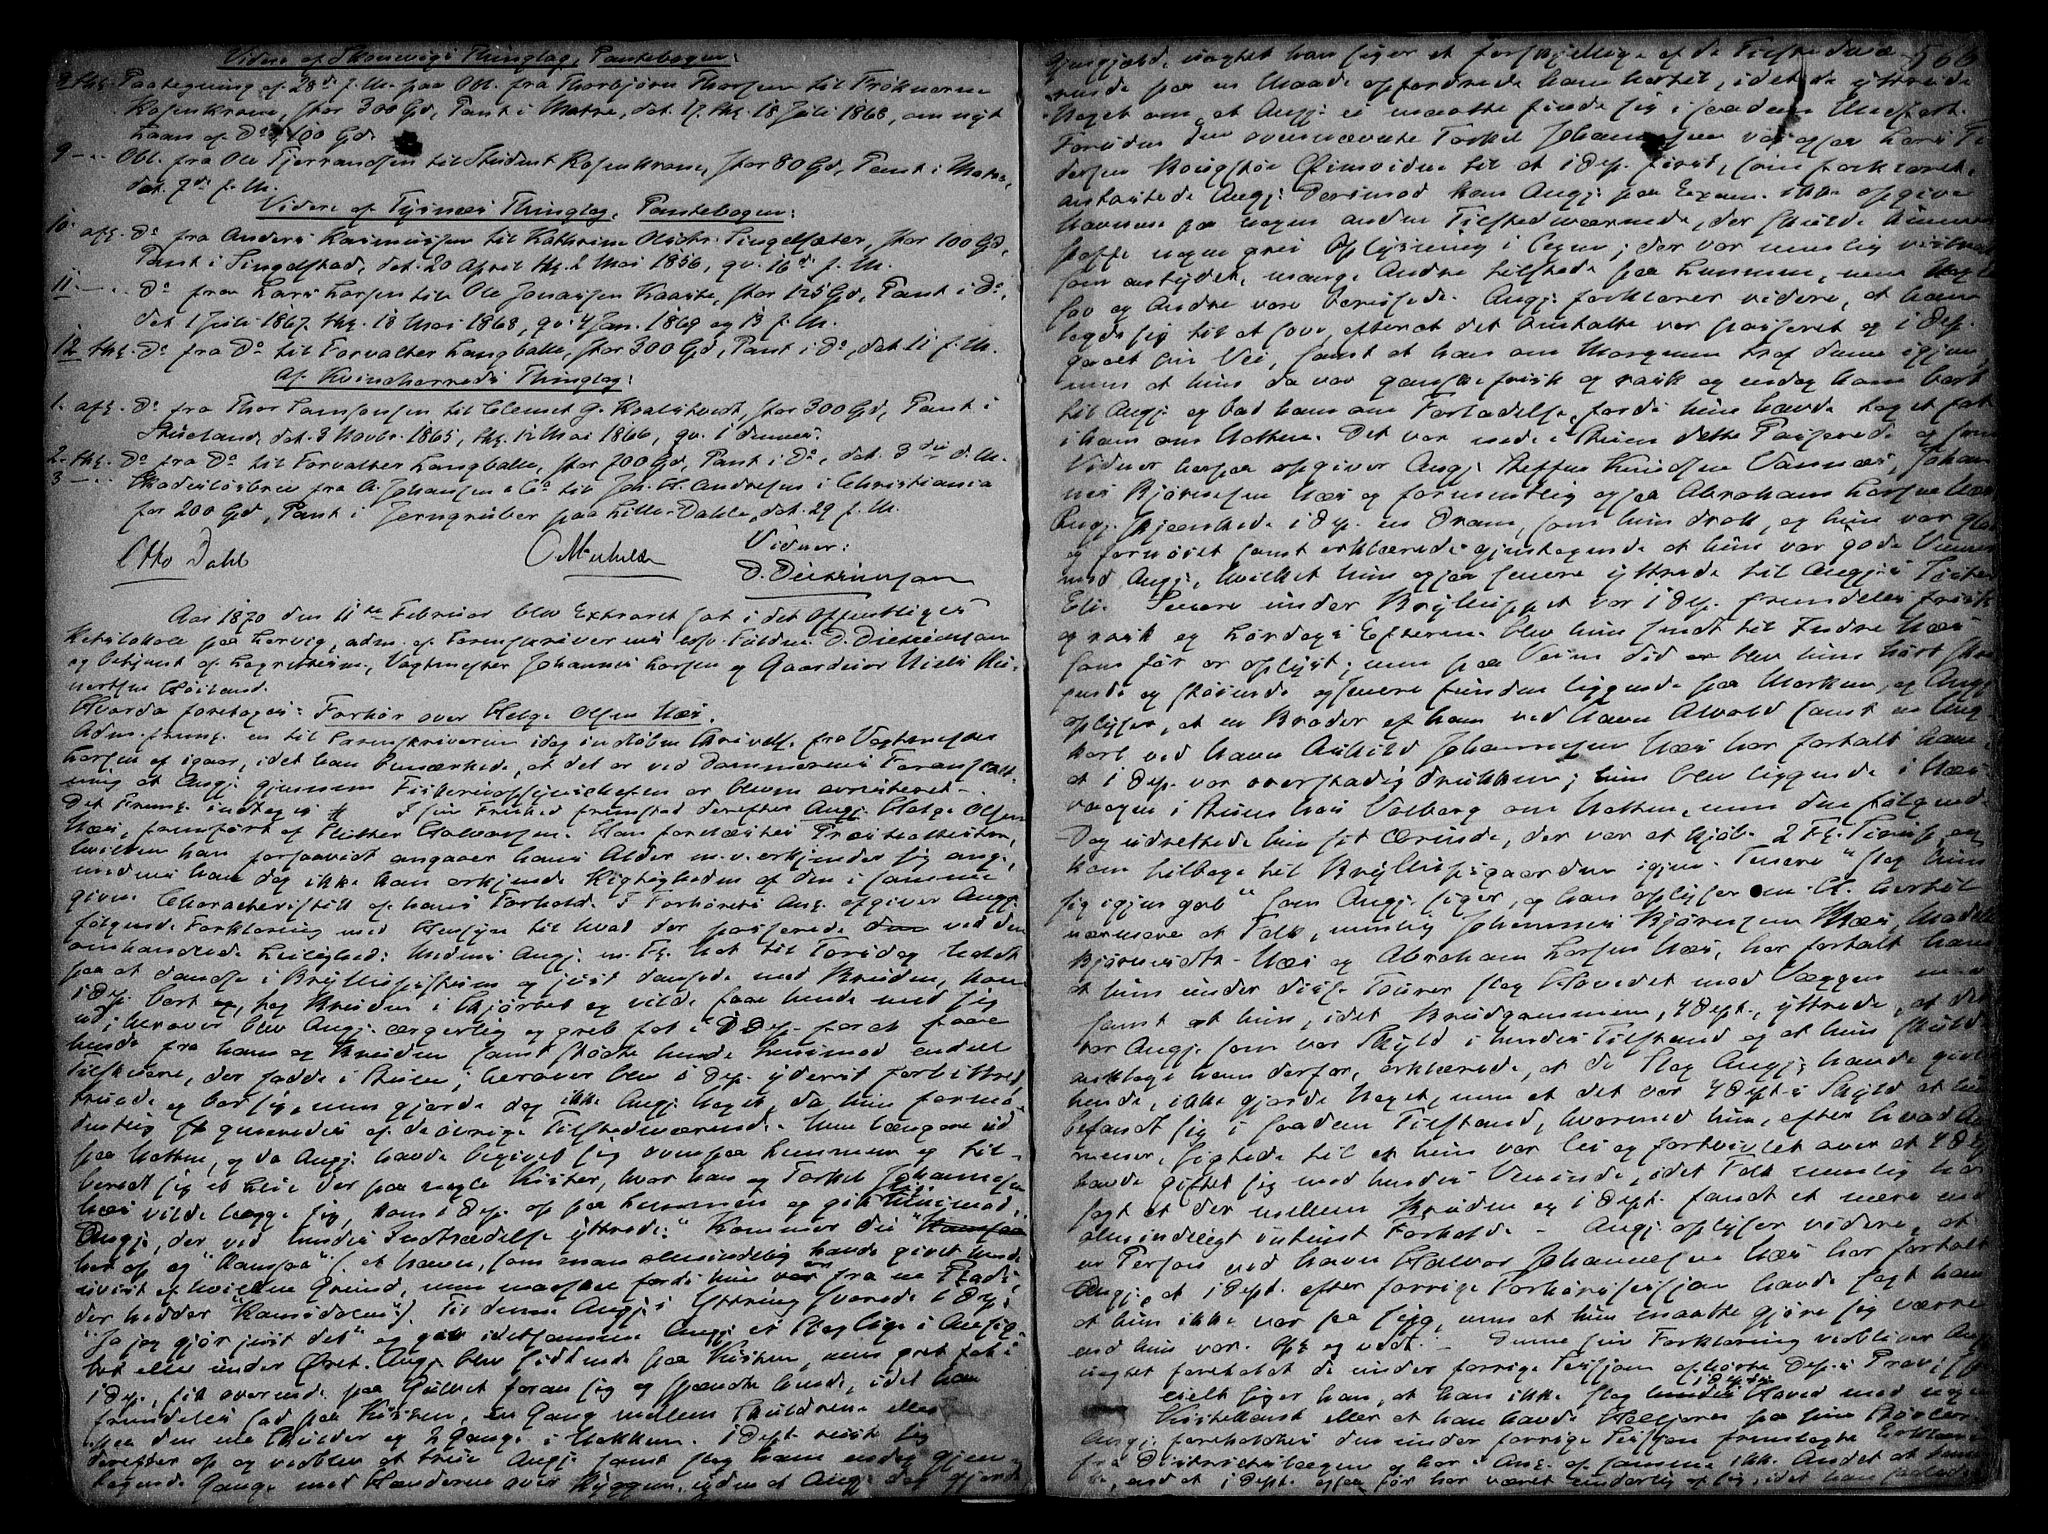 Videre af Skonevigs Thinglag, Pantebogen:
Paategning af 28de f. M. paa Obl. fra Thorbjørn Thorsen til Frøknerne
Rosenkrone, stor 300 Spd, Pant i Matre, dat. 17. thg. 18 Juli 1868, om nyt
Laan af Do, 100 Spd.
9 - Obl. fra Ole Tjerrandsen til Student Rosenkrone, stor 80 Spd, Pant i Matre,
dat. 7de f. M.
Videre af Tysnæs Thinglag, Pantebogen:
10. afl. Do fra Anders Rasmussen til Kathrine Olsdr. Singelsæter, stor 100 Spd,
Pant i Singelstad, dat. 20 April thg. 2 Mai 1856, qv. 16de f. M.
11 - Do fra Lars Larsen til Ole Jonassen Kaaste, stor 125 Spd, Pant i Do,
dat. 1 Juli 1867, thg. 18 Mai 1868, qv. 4 Jan. 1869 og 13 f. M.
12 thg. Do fra Do til Forvalter Langballe, stor 300 Spd, Pant i Do, dat. 11 f. M.
Af Kvindherreds Thinglag:
1. afl. Do fra Thor Samsonsen til Clemet G. Kvalstvedt, stor 300 Spd, Pant i
dat. 3 Novbr. 1865, thg. 12 Mai 1866, qv. 1 dennes.
2. thg. Do fra Do til Forvalter Langballe, stor 700 Spd, Pant i Do, dat. 3die d. M.
3 - Skadesløsbrev fra A. Johansen & Co til Joh. H. Andresen i Christiania
for 200 Spd, Pant i Jerngruber paa Lille-Dahle, dat. 29 f. M.
Otto Dahl
Vidner:
Aar 1870 den 11te Februar blev Extraret sat i det offentlige
Retslokale paa Lervig, adm. af Sorenskriverens edsv. Fuldm. D.
og betjent af Lagrettesm. Vagtmester Johannes Larsen og Gaardbruger Niels
Høiland.
Hvorda foretoges: Forhør over Helge Olsen Næs.
Adm. freml. en til Sorenskriveren idag indkommen Skrivelse fra Vagtmester
Larsen af igaar, idet han bemærkede, at det er ved Dommerens Foranstalt-
ning at Angj. gjennem Fiskeriopsynschefen er bleven arresteret.
Det Freml. indtages. I fin Frihed fremstod derefter Angj. Helge Olsen
Næs, fremført af Halvorsen. Han forelæstes Præsteattesten,
hvilken han forsaavidt angaaer hans Alder m. v. erkjender sig ang.,
medens han dog ikke kan erkjende Rigtigheden af den i samme
givne Characteristik af hans Forhold. I Forhørets Anl. afgiver Angj.
følgende Forklaring med Hensyn til hvad der passerede ved den
omhandlede Leilighed: Medens Angj. m. Fl. Nat til Torsdag holdt
paa at dandse i Bryllupsstuen og just dansede med Bruden, kom
i Dep. bort og tog Bruden i Skjørtet og vilde faae hende med sig
ud; herover blev Angj. ærgerlig og greb fat i i Dep. for at faae
hende fra ham og Bruden samt stødte hende henimod endeel
Tilskuere, der sadde i Stuen; herover blev i Dep. yderst forbittret,
truede og bar sig, men gjorde dog ikke Angj. Noget, da hun formo-
dentlig generedes af de øvrige Tilstedeværende. Men længere ud
paa Natten, og da Angj. havde begivet sig ovenpaa Lemmen og til-
beredt sig et Leie der paa nogle Kister, hvor han og Torkel Johannesen
Næs vilde lægge sig, kom i Dep. op paa Lemmen og gik henimod
Angj., der ved hendes Indtrædelse yttrede: "Kommer du
her op og "Ramsaa" (et Navn, som man almindelig havde givet hende
uvist af hvilken Grund, men maaskee fordi hun var fra en Plads,
der hedder "Ramsødalen"). Til denne Angj.s Yttring svarede i Dep.:
"Ja jeg gjør just det" og gav idetsamme Angj. et Slag lige i Ansig-
tet eller under Øret. Angj. blev siddende paa Kisten, men greb fat i
i Dep., fik overende paa Gulvet foran sig og spændte hende, idet han
fremdeles sad paa Kisten, en Gang mellem Skuldrene eller
paa den ene Skulder og 2 Gange i Nakken. i Dep. reiste sig
derefter op og vedblev at true Angj. samt slog ham endog gjen-
tagende Gange med Hænderne over Ryggen, uden at Angj. dog gjorde
566
Gjengjæld, uagtet han siger at forskjellige af de Tilstedevæ-
rende paa en Maade opfordrede ham hertil, idet de yttrede
Noget om, at Angj. ei maatte finde sig i saadan Medfart.
Foruden den ovennævnte Torkel Johannesen var ogsaa Lars
dersen til at i Dep. først, som forklaret,
antastede Angj. Derimod kan Angj. paa Exam. ikke opgive
Navnene paa nogen anden Tilstedeværende, der skulde kunne
skaffe nogen Oplysning i Sagen; der var nemlig vistnok
som antydet, mange Andre tilstede paa Lemmen, men Nogle
sov og Andre vare berusede. Angj. forklarer videre, at han
lagde sig til at sove, efterat det Omtalte var passeret og i Dep.
gaaet sin Vei, samt at han om Morgenen traf denne igjen,
men at hun da var ganske frisk og rask og endog kom bort
til Angj. og bad ham om Forladelse, fordi hun havde taget fat
i ham om Natten. Det var nede i Stuen dette Passerede og som
Vidner herpaa opgiver Angj. Steffen Knudsen Vannæs, Johan-
nes Bjørnsen Næs og formentlig ogsaa Abraham Larsen Næs.
Angj. skjænkede i Dep. en Dram, som hun drak, og hun var glad
og fornøiet samt erklærede gjentagende at hun var gode Venner
med Angj., hvilket hun ogsaa senere yttrede til Angj.s Søster
Eli. Senere under Brylluppet var i Dep. fremdeles frisk
og rask og Lørdags Efterm. blev hun sendt til Indre Næs
som før er oplyst; men paa Veien did blev hun hørt skri-
gende og støiende og senere funden liggende paa Marken, og Angj.
oplyser, at en Broder af ham ved Navn Alvald samt en Ung-
karl ved Navn Askild Johannesen Næs har fortalt ham,
at i Dep. var overstadig drukken; hun blev liggende i Næs
vaagen i Stuen hos Valborg om Natten, men den følgende
Dag udrettede hun sit Ærinde, der var at kjøbe 2 Fl. Sirup, og
kom tilbage til Bryllupsgaarden igjen. Senere "slog hun
sig igjen gal" som Angj. siger, og han oplyser m. H. hertil
nærmere at Folk, nemlig Johannes Bjørnsen Næs,
Næs og Abraham Larsen Næs, har fortalt ham
at hun under disse Tourer slog Hovedet mod Væggen
samt at hun, idet Brudgommen, 4 Dept., yttrede, at det
var Angj. som var Skyld i hendes Tilstand og at hun skulde
anklage ham derfor, erklærede, at de Slag Angj. havde givet
hende, ikke gjorde Noget, men at det var 4 Dept.s Skyld at hun
befandt sig i saadan Tilstand, hvormed hun, efter hvad An
mener, sigtede til at hun var lei og fortvivlet over at 4 Dep
havde giftet sig med hendes Veninde, idet Folk nemlig har
sagt at der mellem Bruden og i Dept. fandt et mere end
almindeligt intimt Forhold. - Angj. oplyser videre, at
en Person ved Navn Halvor Johannesen Næs har fortalt
Angj., at i Dept. efter forrige Forhørssession havde sagt ham
at hun ikke var saa syg, men at hun maatte gjøre sig værre
end hun var. Opl. og vedt. - Denne sin Forklaring vedbliver Angj.
uagtet foreholdt de under forrige Session afhørte Dep.s Prov.
cielt siger han, at han ikke slog i Depts Hoved mod nogen
Kistekant eller at han havde Hæljern paa sine Støvler.
Angj. foreholdtes den under forrige Session fremlagte Erklæring
fra Districtslægen og har i Anl. af samme ikke Andet at bemær-
ke, end at i Dept. ogsaa før har været underlig af sig, idet